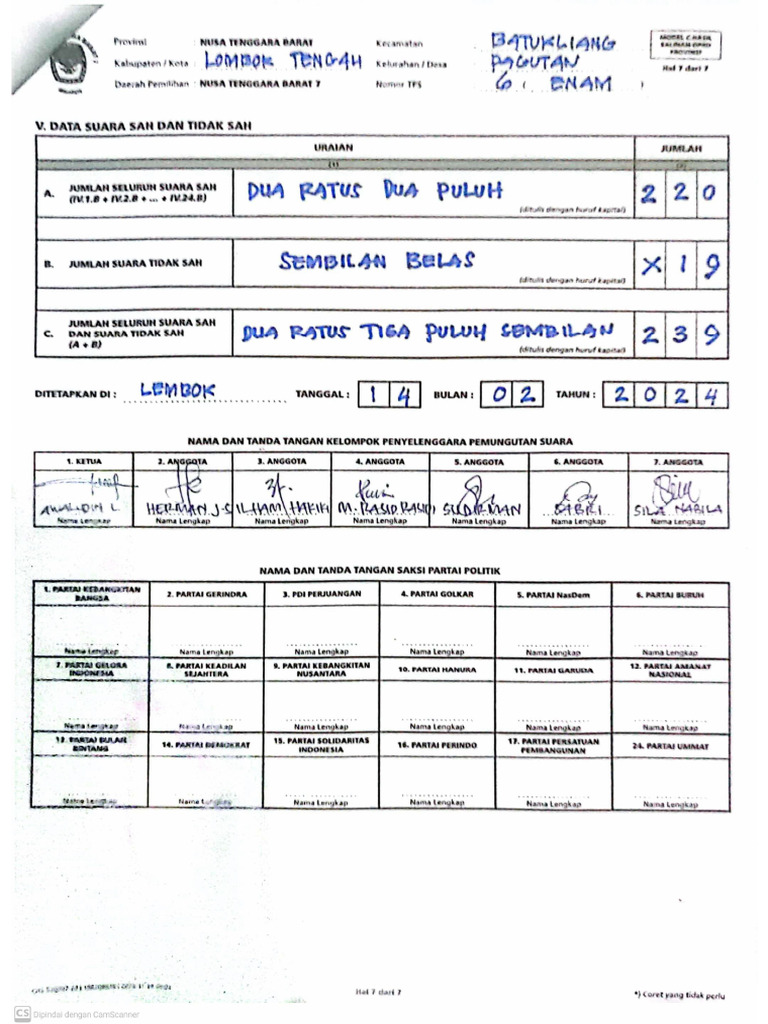 Provinsi : NUSA TENGGARA BARAT
Kabupaten / Kota : LOMBOK TENGAH
Daerah Pemilihan : NUSA TENGGARA BARAT 7
Kecamatan BATUKLIANG
Kelurahan / Desa PAGUTAN
Nomor TPS 6 ( ENAM )
MODEL C.HASIL
SALINAN-DPRD
PROVINSI
Hal 7 dari 7
V. DATA SUARA SAH DAN TIDAK SAH
URAIAN JUMLAH
(1) (2)
A. JUMLAH SELURUH SUARA SAH
(IV.1.B + IV.2.B + ... + IV.24.B)
DUA RATUS DUA PULUH 2 2 0
(ditulis dengan huruf kapital)
B. JUMLAH SUARA TIDAK SAH SEMBILAN BELAS X 1 9
(ditulis dengan huruf kapital)
C. JUMLAH SELURUH SUARA SAH
DAN SUARA TIDAK SAH
(A + B)
DUA RATUS TIGA PULUH SEMBILAN 2 3 9
(ditulis dengan huruf kapital)
DITETAPKAN DI : LEMBOK TANGGAL : 1 4 BULAN : 0 2 TAHUN : 2 0 2 4
NAMA DAN TANDA TANGAN KELOMPOK PENYELENGGARA PEMUNGUTAN SUARA
1. KETUA 2. ANGGOTA 3. ANGGOTA 4. ANGGOTA 5. ANGGOTA 6. ANGGOTA 7. ANGGOTA
AWALUDIN L. HERMAN J.S ILHAM HAKIKI M. RASID RASIDI SUDIRMAN SABRI SILA NABILA
Nama Lengkap Nama Lengkap Nama Lengkap Nama Lengkap Nama Lengkap Nama Lengkap Nama Lengkap
NAMA DAN TANDA TANGAN SAKSI PARTAI POLITIK
1. PARTAI KEBANGKITAN BANGSA 2. PARTAI GERINDRA 3. PDI PERJUANGAN 4. PARTAI GOLKAR 5. PARTAI NasDem 6. PARTAI BURUH
Nama Lengkap Nama Lengkap Nama Lengkap Nama Lengkap Nama Lengkap Nama Lengkap
7. PARTAI GELORA INDONESIA 8. PARTAI KEADILAN SEJAHTERA 9. PARTAI KEBANGKITAN NUSANTARA 10. PARTAI HANURA 11. PARTAI GARUDA 12. PARTAI AMANAT NASIONAL
Nama Lengkap Nama Lengkap Nama Lengkap Nama Lengkap Nama Lengkap Nama Lengkap
13. PARTAI BULAN BINTANG 14. PARTAI DEMOKRAT 15. PARTAI SOLIDARITAS INDONESIA 16. PARTAI PERINDO 17. PARTAI PERSATUAN PEMBANGUNAN 24. PARTAI UMMAT
Nama Lengkap Nama Lengkap Nama Lengkap Nama Lengkap Nama Lengkap Nama Lengkap
Hal 7 dari 7
*) Coret yang tidak perlu
CS Dipindai dengan CamScanner